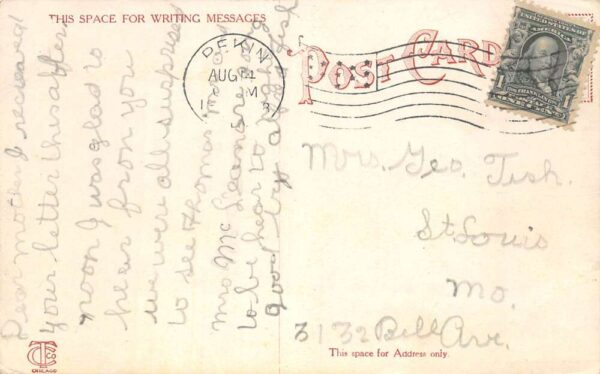 THIS SPACE FOR WRITING MESSAGES
POST CARD
PEKIN
AUG
M
UNITED STATES OF AMERICA
1 1
ONE CENT
Dear mother I recieved
your letter this after
noon I was glad is
hear fron you
we were all surprised
to see Thomas
Mrs Mc
to be hear to
good by
Mrs. Geo. Tish.
St Louis
Mo.
3132 Bell Ave.
This space for Address only.
CHICAGO